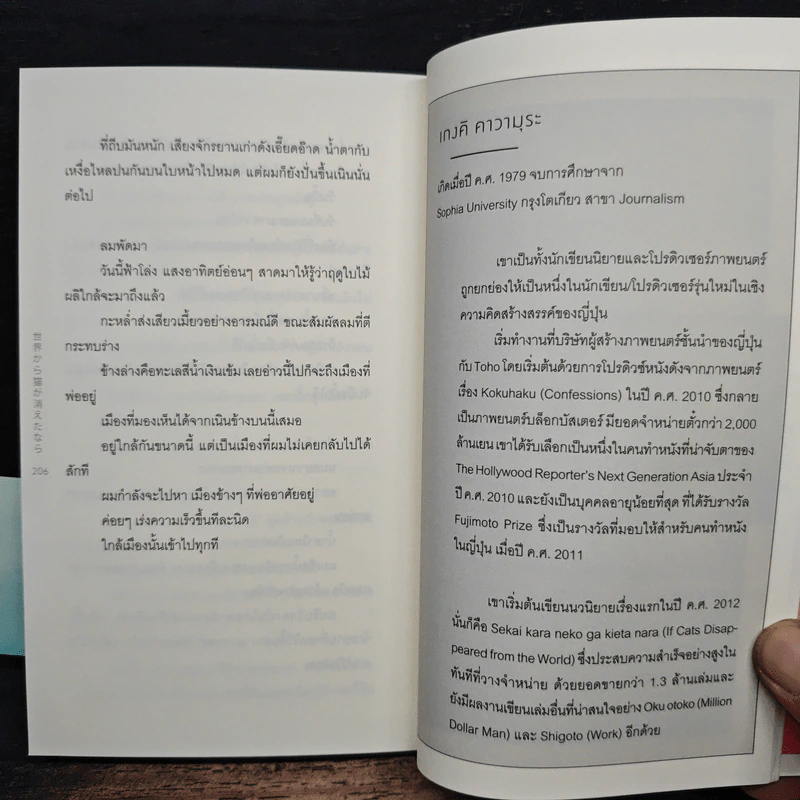 ที่ถีบมันหนัก เสียงจักรยานเก่าดังเอี๊ยดอ๊าด น้ำตากับ
เหงื่อไหลปนกันบนใบหน้าไปหมด แต่ผมก็ยังปั่นขึ้นเนินนั่น
ต่อไป
ลมพัดมา
วันนี้ฟ้าโล่ง แสงอาทิตย์อ่อนๆ สาดมาให้รู้ว่าฤดูใบไม้
ผลิใกล้จะมาถึงแล้ว
กะหล่ำส่งเสียงเมี้ยวอย่างอารมณ์ดี ขณะสัมผัสลมที่ตี
กระทบร่าง
ข้างล่างคือทะเลสีน้ำเงินเข้ม เลยอ่าวนี้ไปก็จะถึงเมืองที่
พ่ออยู่
เมืองที่มองเห็นได้จากเนินข้างบนนี้เสมอ
อยู่ใกล้กันขนาดนี้ แต่เป็นเมืองที่ผมไม่เคยกลับไปได้
สักที
ผมกำลังจะไปหา เมืองข้างๆ ที่พ่ออาศัยอยู่
ค่อยๆ เร่งความเร็วขึ้นทีละนิด
ใกล้เมืองนั้นเข้าไปทุกที
世界から猫が消えたなら
206
เกงคิ คาวามุระ
เกิดเมื่อปี ค.ศ. 1979 จบการศึกษาจาก
Sophia University กรุงโตเกียว สาขา Journalism
เขาเป็นทั้งนักเขียนนิยายและโปรดิวเซอร์ภาพยนตร์
ถูกยกย่องให้เป็นหนึ่งในนักเขียน/โปรดิวเซอร์รุ่นใหม่ในเชิง
ความคิดสร้างสรรค์ของญี่ปุ่น
เริ่มทำงานที่บริษัทผู้สร้างภาพยนตร์ชั้นนำของญี่ปุ่น
กับ Toho โดยเริ่มต้นด้วยการโปรดิวซ์หนังดังจากภาพยนตร์
เรื่อง Kokuhaku (Confessions) ในปี ค.ศ. 2010 ซึ่งกลาย
เป็นภาพยนตร์บล็อกบัสเตอร์ มียอดจำหน่ายตั๋วกว่า 2,000
ล้านเยน เขาได้รับเลือกเป็นหนึ่งในคนทำหนังที่น่าจับตาของ
The Hollywood Reporter's Next Generation Asia ประจำ
ปี ค.ศ. 2010 และยังเป็นบุคคลอายุน้อยที่สุด ที่ได้รับรางวัล
Fujimoto Prize ซึ่งเป็นรางวัลที่มอบให้สำหรับคนทำหนัง
ในญี่ปุ่น เมื่อปี ค.ศ. 2011
เขาเริ่มต้นเขียนนวนิยายเรื่องแรกในปี ค.ศ. 2012
นั่นก็คือ Sekai kara neko ga kieta nara (If Cats Disap-
peared from the World) ซึ่งประสบความสำเร็จอย่างสูงใน
ทันทีที่วางจำหน่าย ด้วยยอดขายกว่า 1.3 ล้านเล่มและ
ยังมีผลงานเขียนเล่มอื่นที่น่าสนใจอย่าง Oku otoko (Million
Dollar Man) และ Shigoto (Work) อีกด้วย